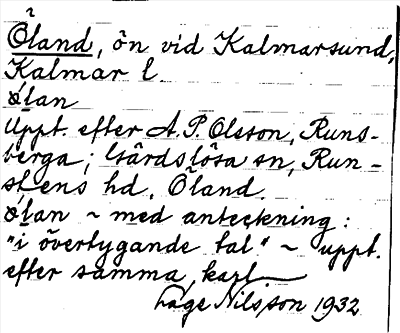 Öland, ön vid Kalmarsund,
Kalmar l.
ølan
Uppt. efter A. P. Olsson, Runs-
berga, Gärdslösa sn, Run-
stens hd, Öland.
ølan ~ med anteckning:
"i övertygande tal" ~ uppt.
efter samma karl
Åge Nilsson 1932